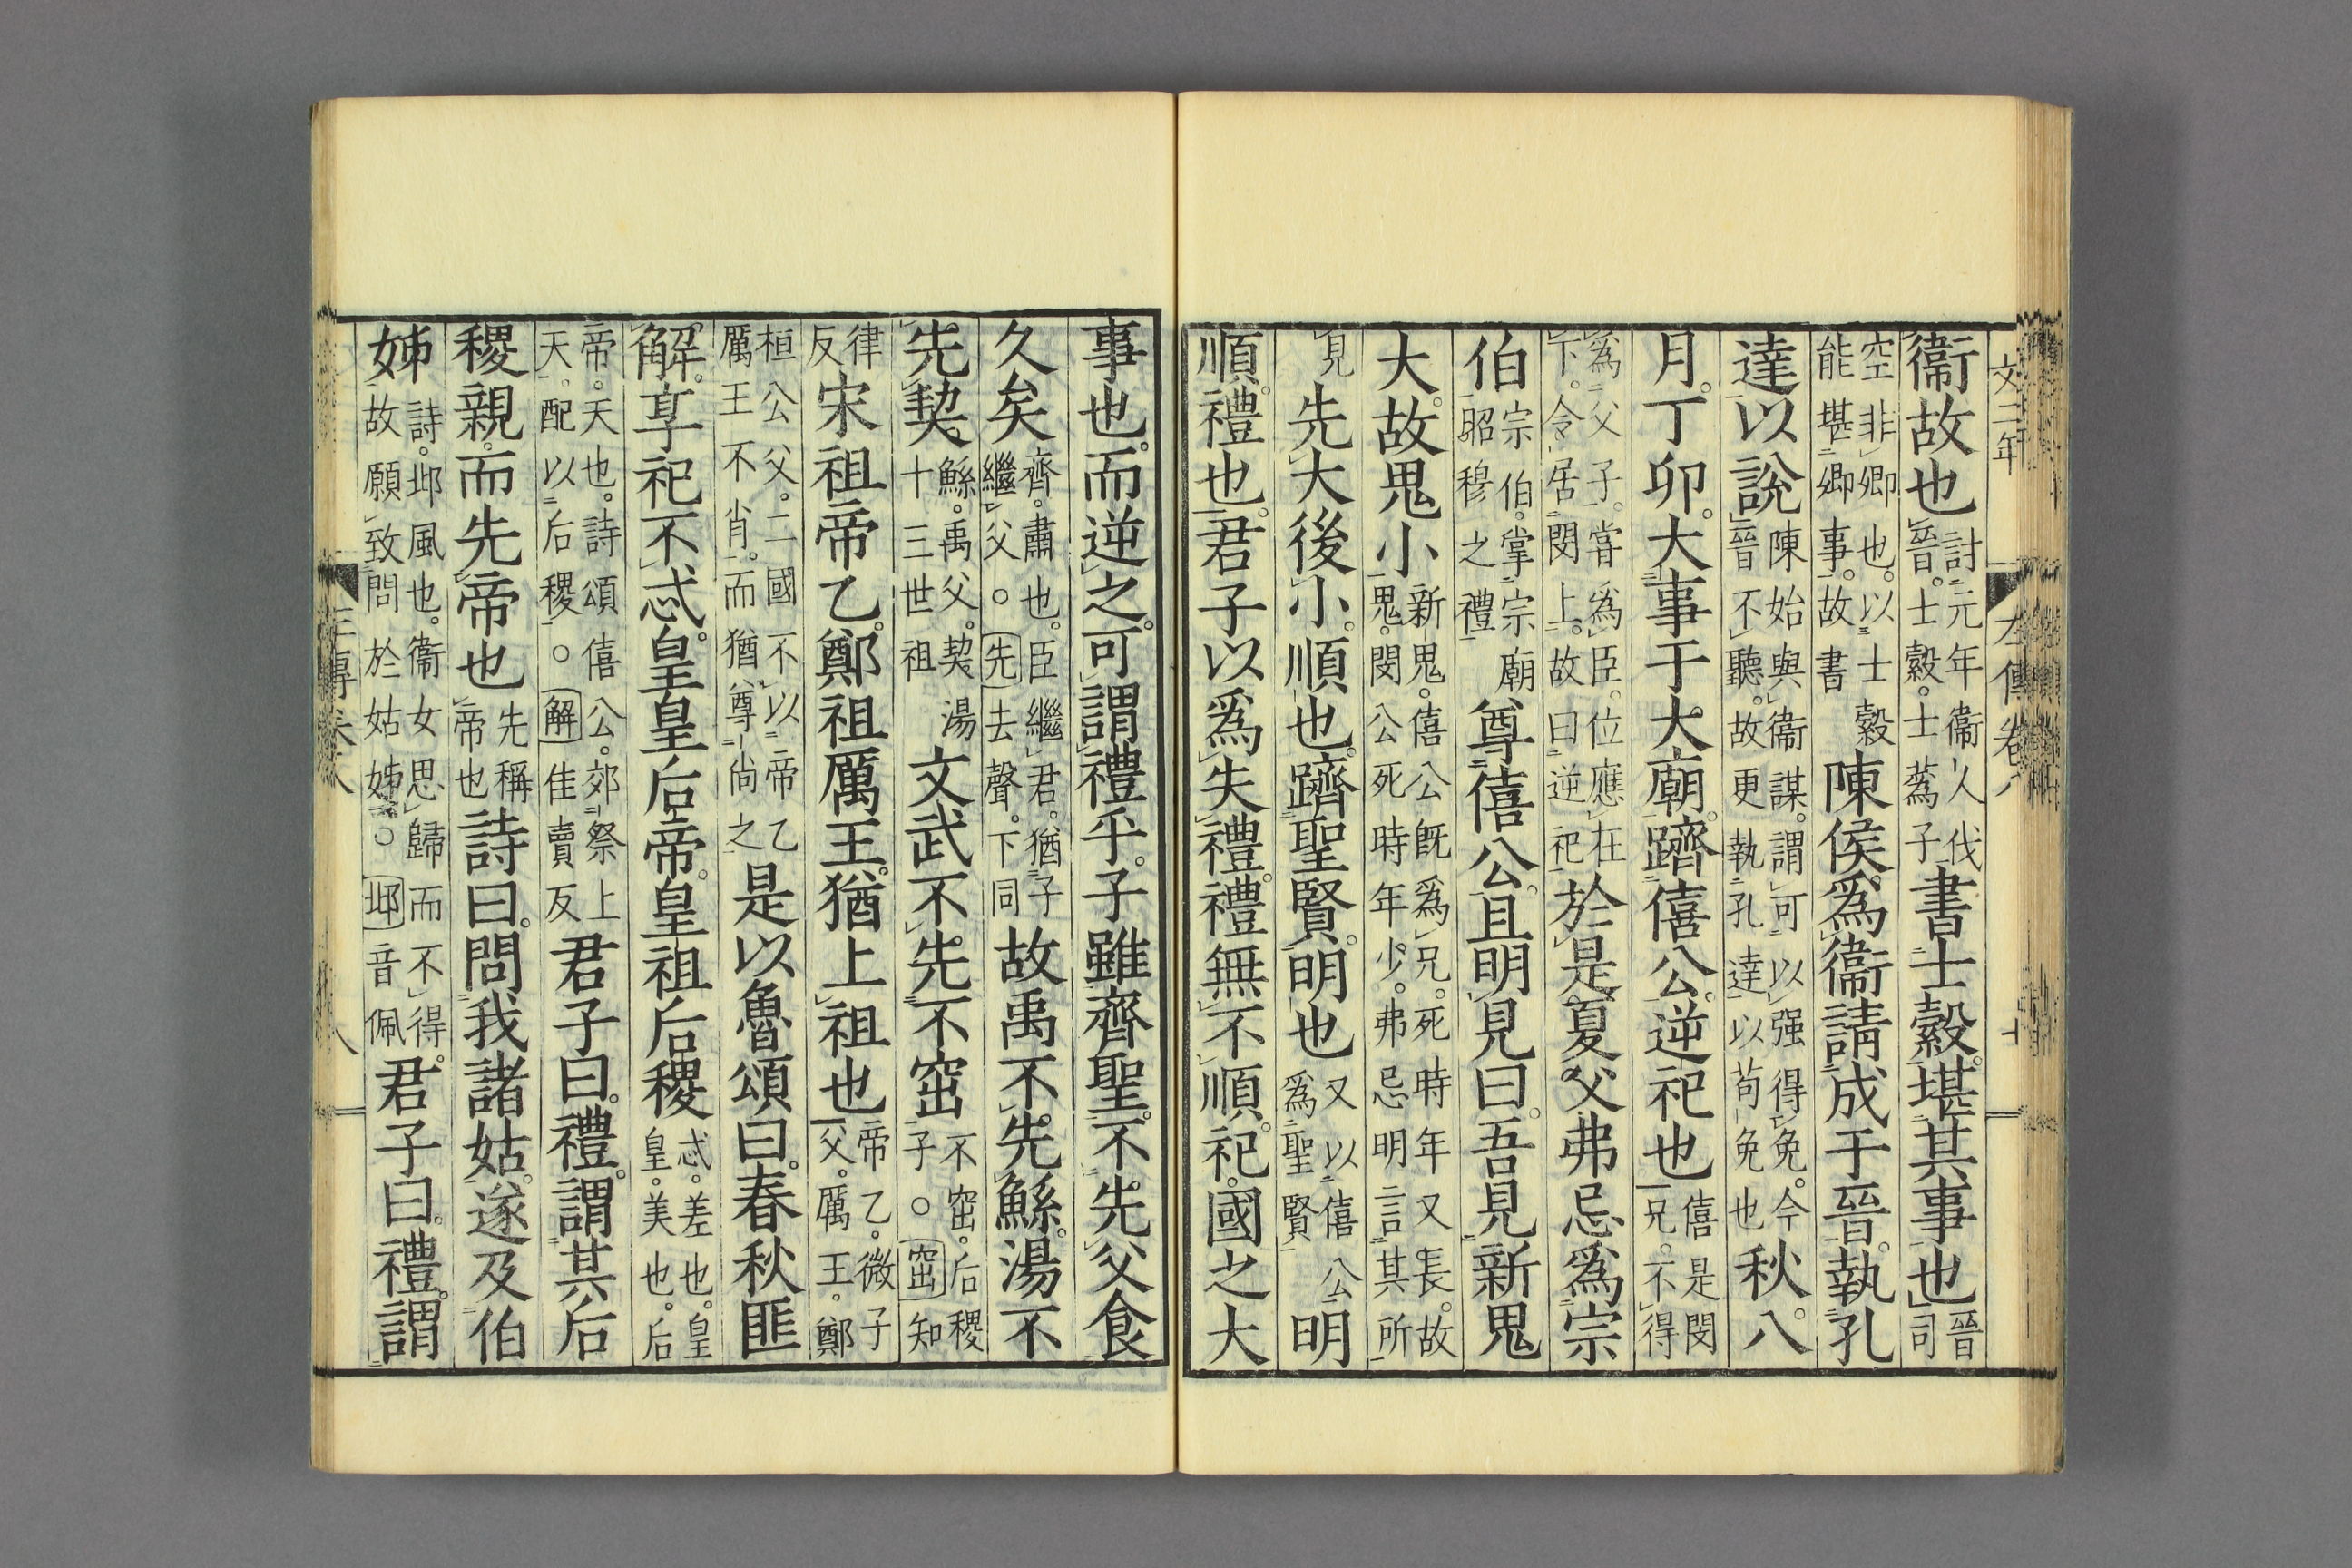 文二年 左傳卷八 十
衞故也討元年衞人伐晉。士縠。士蒍子書士縠。堪其事也晉司
空非卿也。以士縠能堪卿事。故書陳侯。爲衞請成于晉。執孔
達以說陳始與衞謀。謂可以强得免。今晉不聽。故更執孔達以苟免也秋。八
月。丁卯。大事于大廟。躋僖公。逆祀也僖是閔兄。不得
爲父子。嘗爲臣。位應在下。令居閔上。故曰逆祀於是。夏父弗忌爲宗
伯宗伯。掌宗廟昭穆之禮尊僖公。且明見曰。吾見新鬼
大。故鬼小新鬼。僖公既爲兄。死時年又長。故鬼。閔公死時年少。弗忌明言其所
見先大後小。順也。躋聖賢。明也又以僖公爲聖賢明
順。禮也。君子以爲失禮。禮無不順。祀。國之大
事也。而逆之。可謂禮乎。子雖齊聖。不先父食
久矣齊。肅也。臣繼君。猶子繼父。○先去聲。下同故禹不先鯀。湯不
先契。鯀。禹父。契湯十三世祖文武不先不窋不窋。后稷子。○窋知
律反宋祖帝乙。鄭祖厲王。猶上祖也帝乙。微子父。厲王。鄭
桓公父。二國不以帝乙厲王不肖。而猶尊尙之是以魯頌曰。春秋匪
解。享祀不忒。皇皇后帝。皇祖后稷忒。差也。皇皇。美也。后
帝。天也。詩頌僖公。郊祭上天。配以后稷。○解佳賣反君子曰。禮。謂其后
稷親。而先帝也先稱帝也詩曰。問我諸姑。遂及伯
姊詩。邶風也。衞女思歸而不得。故願致問於姑姊。○邶音佩君子曰。禮。謂
八